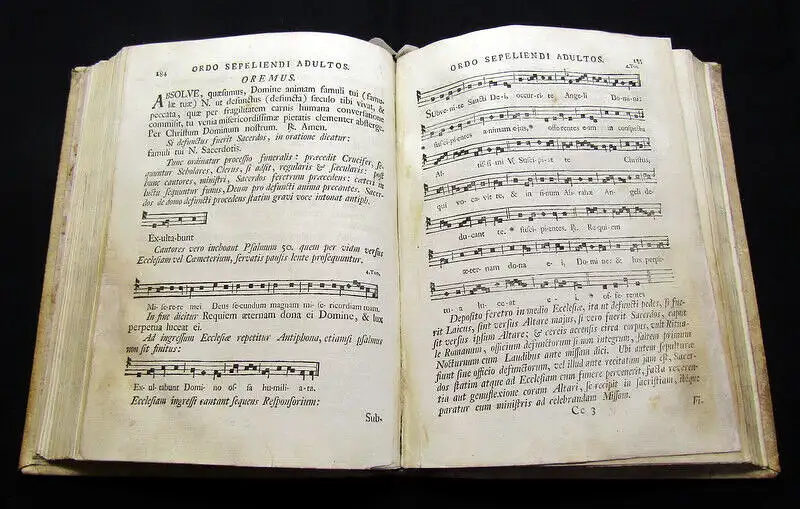 184
ORDO SEPELIENDI ADULTOS.
OREMUS.
ABSOLVE, quæsumus, Domine animam famuli tui (famu-
læ tuæ) N. ut defunctus (defuncta) sæculo tibi vivat, &
peccata, quæ per fragilitatem carnis humana conversatione
commisit, tu venia misericordissimæ pietatis clementer absterge.
Per Christum Dominum nostrum. ℟. Amen.
Si defunctus fuerit Sacerdos, in oratione dicatur:
famuli tui N. Sacerdotis.
Tunc ordinatur processio funeralis: præcedit Crucifer, se-
quuntur Scholares, Clerus, si adsit, regularis & sæcularis: post
hunc cantores, ministri, Sacerdos feretrum præcedens: cæteri in
luctu sequuntur funus, Deum pro defuncti anima precantes. Sacer-
dos de domo defuncti procedens statim gravi voce intonat antiph.
Ex-ultabunt
Cantores vero inchoant Psalmum 50. quem per viam versus
Ecclesiam vel Cæmeterium, servatis pausis lente prosequuntur.
4. Ton.
Mi-se-re-re mei Deus secundum magnam mi-se-ricordiam tuam.
In fine dicitur Requiem æternam dona ei Domine, & lux
perpetua luceat ei.
Ad ingressum Ecclesiæ repetitur Antiphona, etiamsi psalmus
non sit finitus:
Ex-ul-tabunt Domi-no os-sa humili-a-ta.
Ecclesiam ingressi cantant sequens Responsorium:
Sub-
ORDO SEPELIENDI ADULTOS.
185
4. Ton.
Subve-ni-te Sancti De-i, occur-ri-te Ange-li Domi-ni:
suscipi-entes animam ejus,* offe-rentes eam in conspectu
Al- tis-si-mi ℣. Susci-pi-at te Christus,
qui vo-ca-vit te, & in sinum Abra-hæ Ange-li de-
ducant te.* susci-pi-entes. ℟. Requi-em
æ-ter-nam do-na e-i, Do-mi-ne: & lux perpe-
tu-a lu-ce-at e-i.* of-fe-rentes
Deposito feretro in medio Ecclesiæ, ita ut defuncti pedes, si fue-
rit Laicus, sint versus Altare majus, si vero fuerit Sacerdos, caput
sit versus ipsum Altare; & cereis accensis circa corpus, vult Ritua-
le Romanum, officium defunctorum si non integrum, saltem primum
Nocturnum cum Laudibus ante missam dici. Ubi autem sepulturæ
fiunt sine officio defunctorum, vel illud ante recitatum jam est, Sacer-
dos statim atque ad Ecclesiam cum funere pervenerit, facta reveren-
tia aut genuflexione coram Altari, se recipit in sacristiam, ibique
paratur cum ministris ad celebrandam Missam.
Cc 3
Fi.